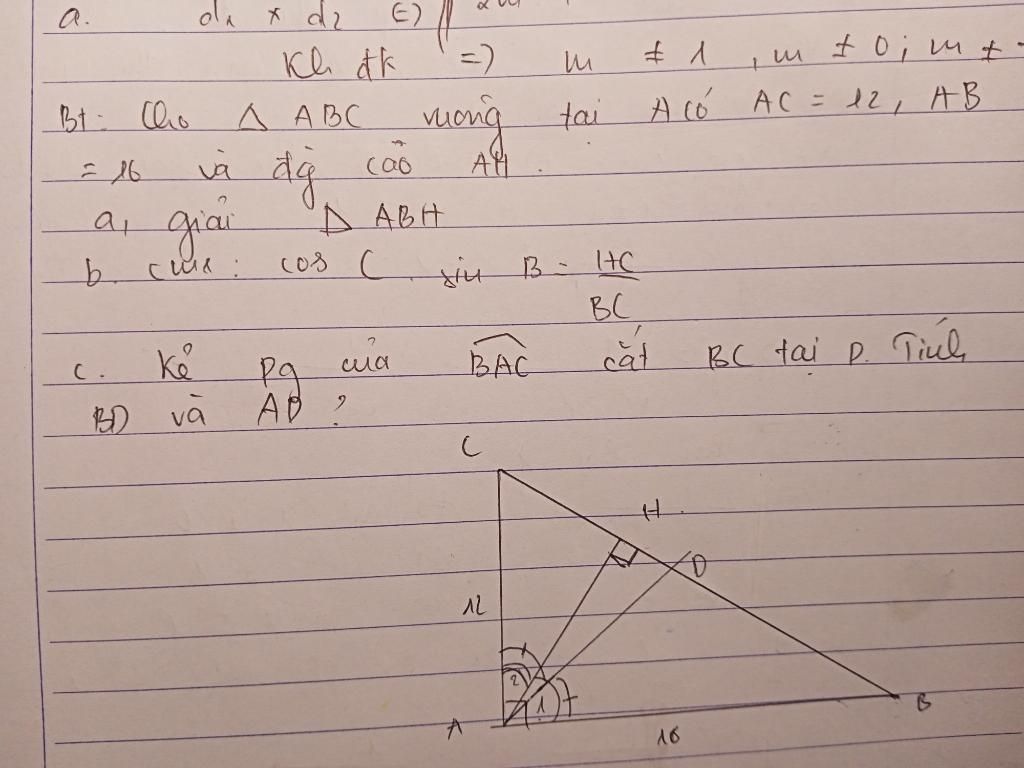 a. d₁ × d₂ ⇔
Kh đk ⇒ m ≠ 1 , m ≠ 0 ; m ≠ -
Bt: Cho Δ ABC vuông tại A có AC = 12, AB
= 16 và đg cao AH.
a, giải Δ ABH
b. cmr: cos C . sin B = HC/BC
c. Kẻ pg của BAC cắt BC tại D. Tính
BD và AD ?
C
H
D
12
2
1
A
B
16